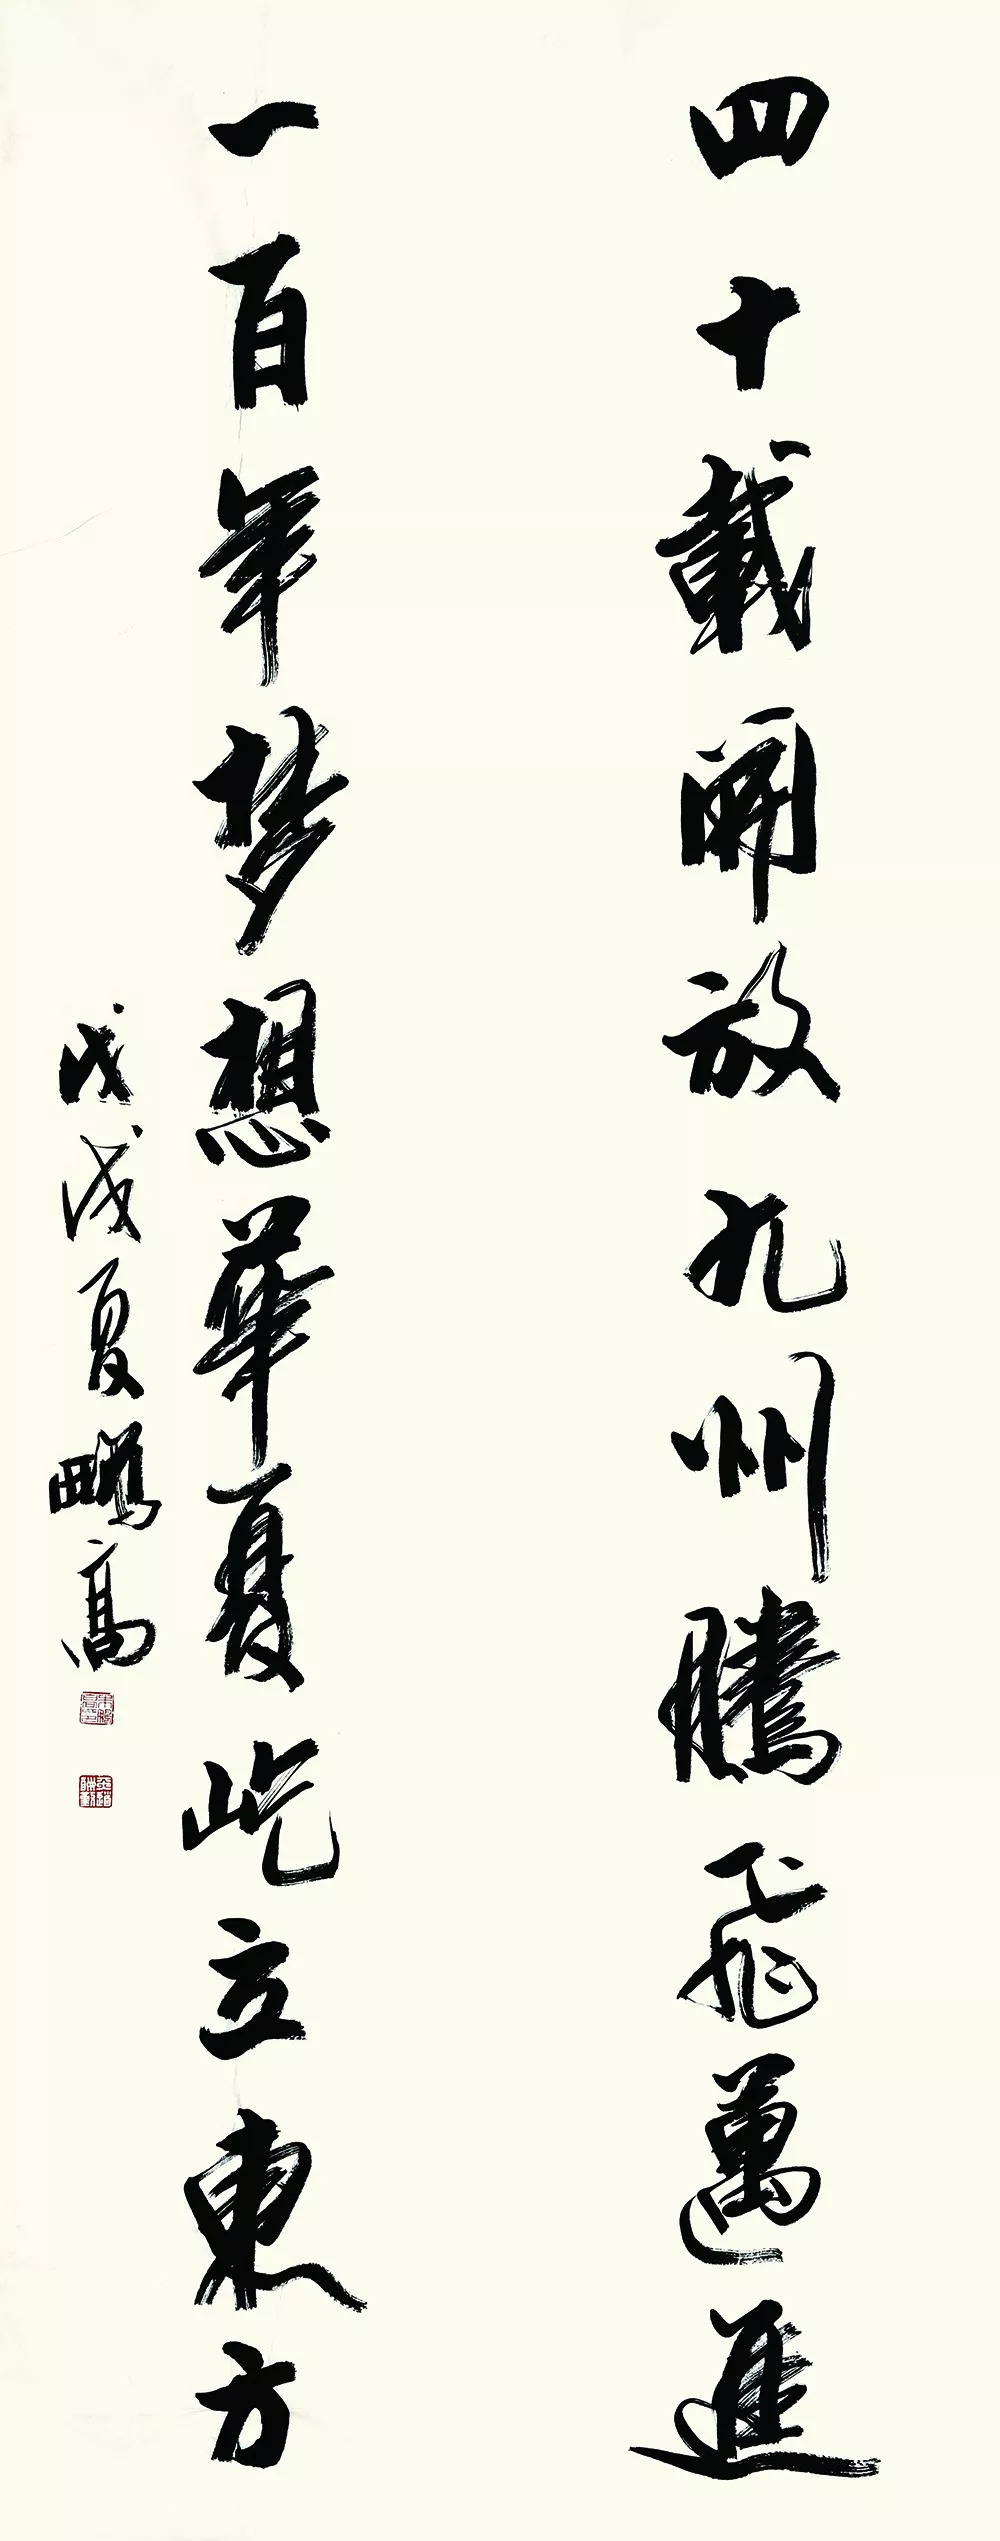 四十載開放九州騰飛邁進
一百年梦想華夏屹立東方
戊戌夏鵬高